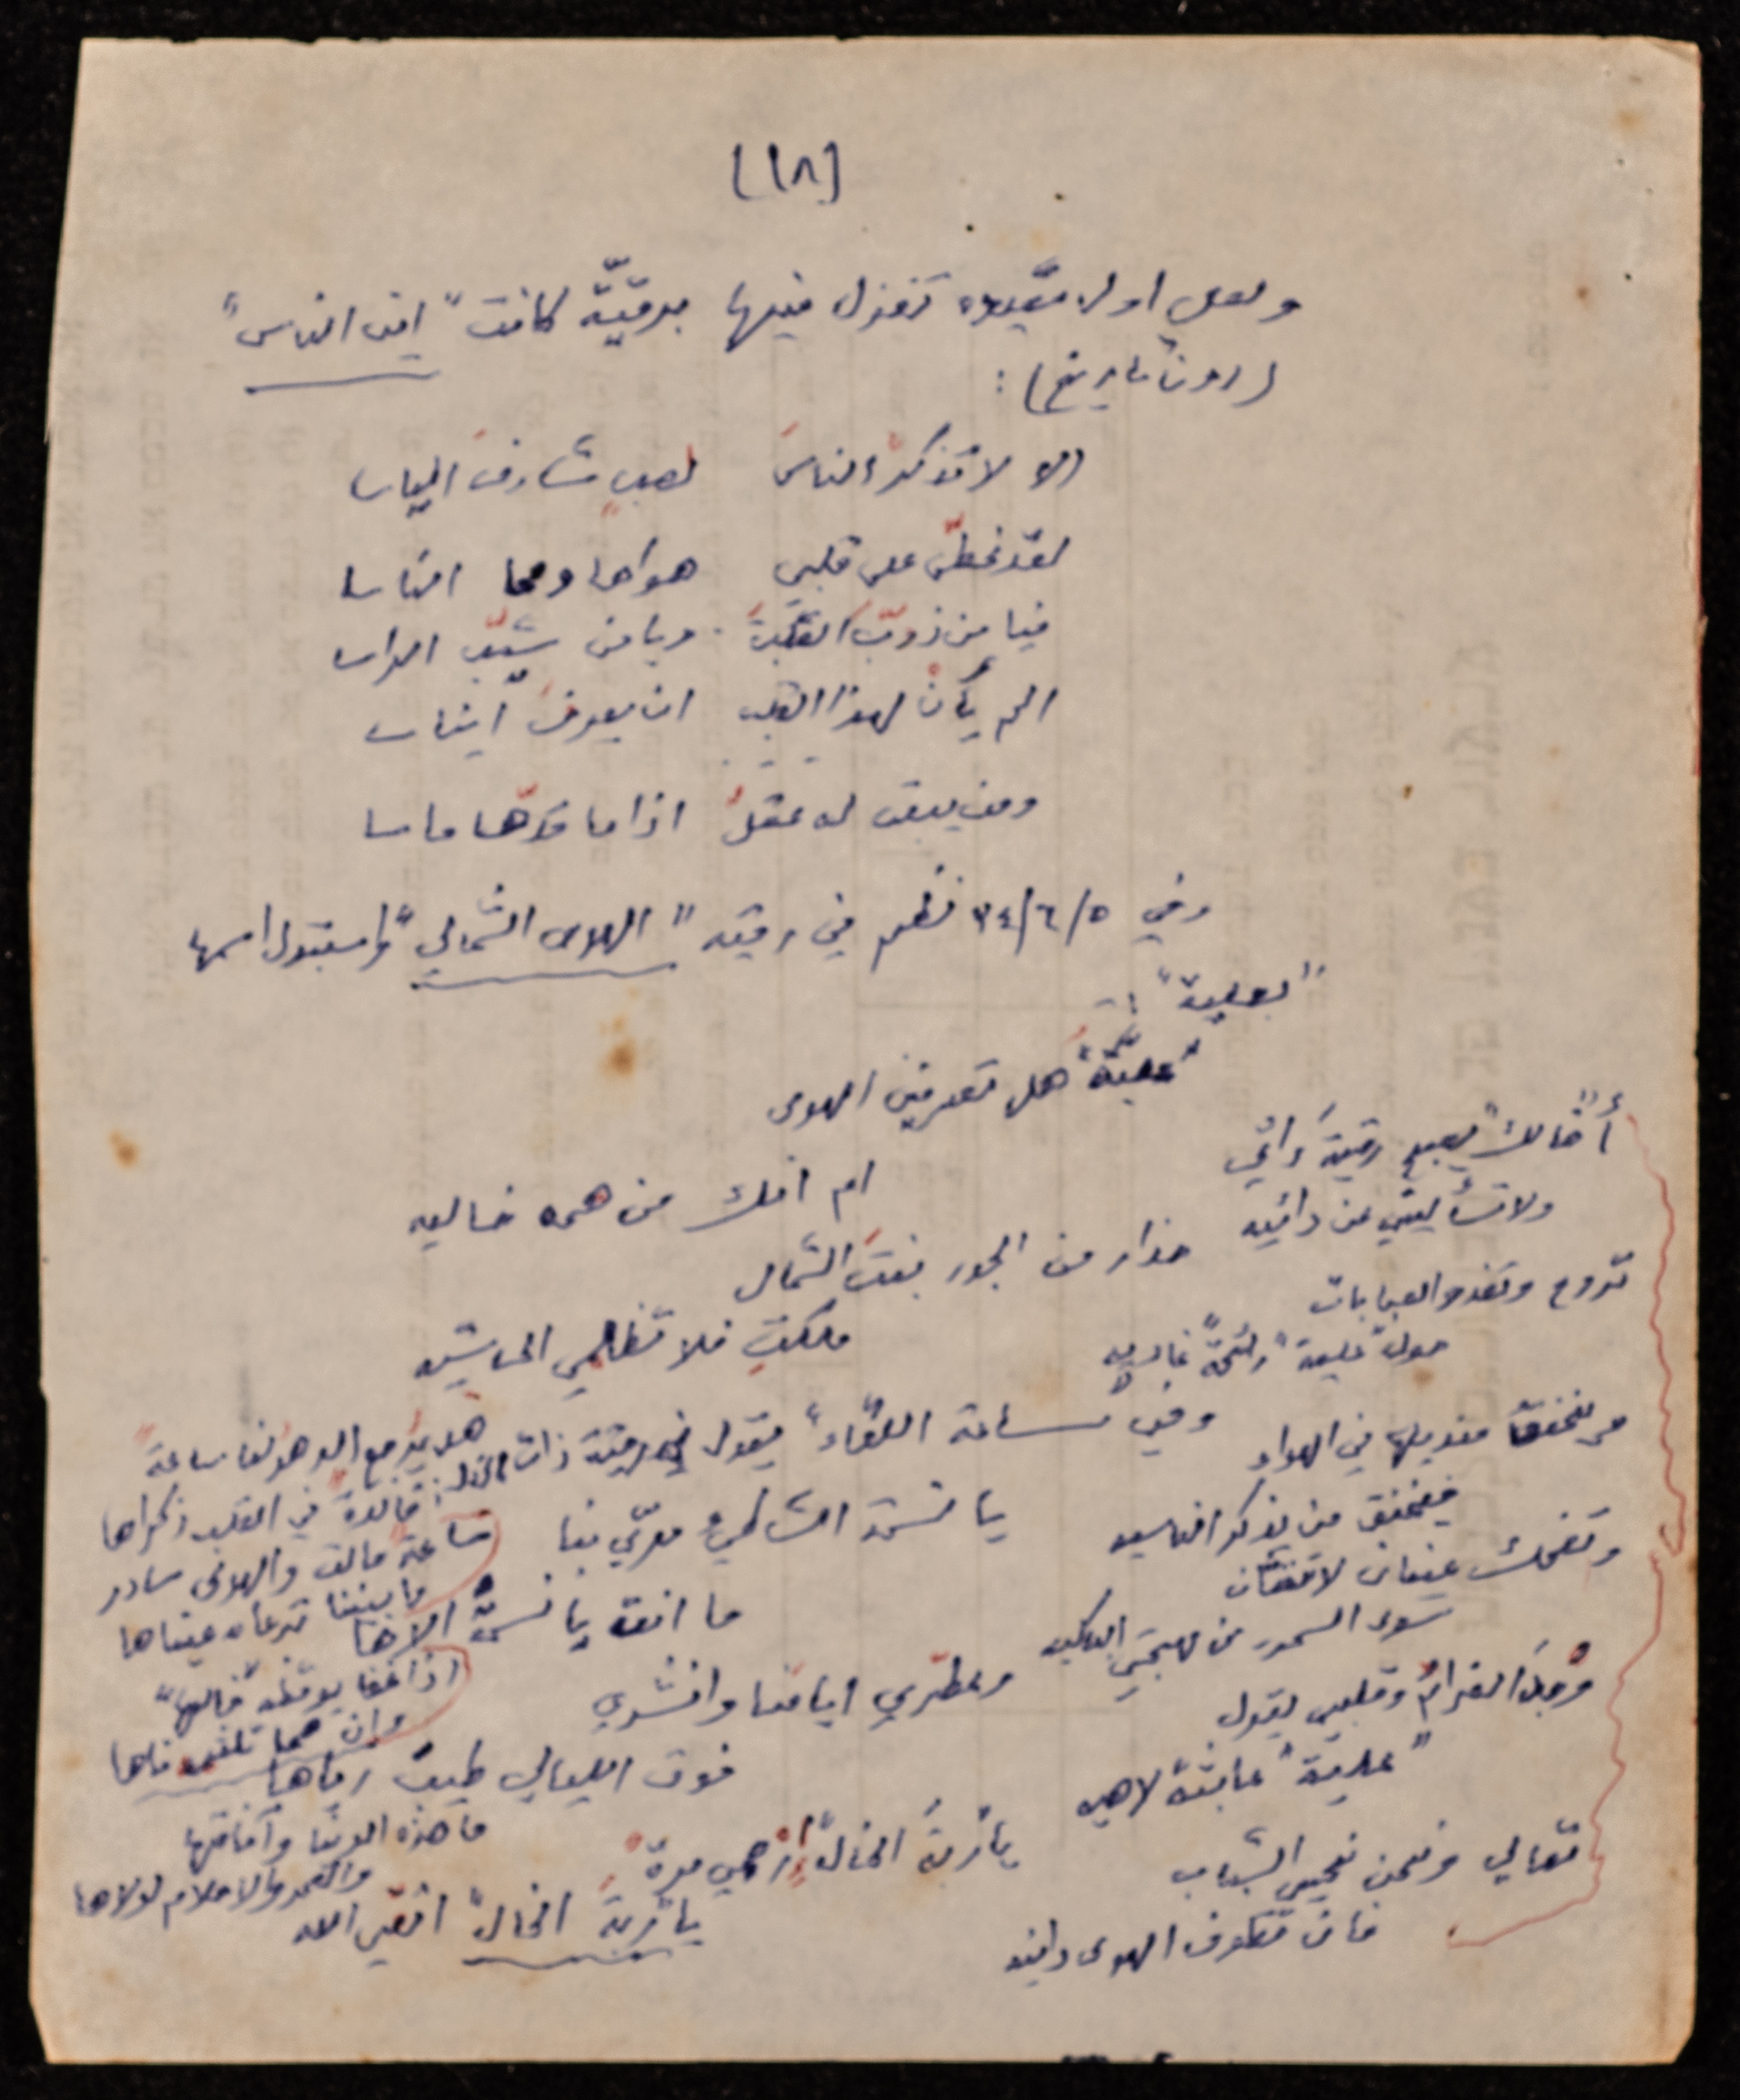 [١٨]
ولعل اول قصيدة تغزل فيها برقيّة كانت "اين الناس"
(دون تاريخ):
الا لا تذكر الناسَ لصبٍ شارف الياسا
لقد غطّى على قلبي هواها ومحا الناسا
فيا من ذوبَّ القلبَ ويا من شيّب الراسا
الم يأن لهذا القلب ان يعرف ايناسا
ومن يبقى له عقلٌ اذا ما قدّها ماسا
وفي ٥/٦/٣٤ نظم في رقية "الهوى الشمالي" واستبدل اسمها
"بعلية":
"عليّة" هل تعرفين الهوى
ام انك من همه خاليه
حذار من الجور بنتَ الشمال
ملكتِ فلا تظلمي الحاشيه
وفي "ساعة اللقاء" يقول في رقية ذات الخال:
يا نسمة الشاطيء مرّي بنا
ما انت يا نسمة الاها
وعطّري ايامنا وانشري
فوق الليالي طيبَ رياها
يا ربةَ "الخال" ارحمي مرةً
يا ربة "الخال" اتقي الله
أخالك لصبع رقية دائي
ولا تسأليني عن دائيه
تروح وتغدو الصبابات
حول "علية" رائحةً غاديه
ويخفق منديلها في الهواء
فيخفق من يذكر الناسيه
وتضحك عينان لا تنضبان
سوى السحر من مهجتي الباكيه
وجلَّ الغرام وقلبي يقول
"علية" عابثة لاهيه
تعالي ونحن نحيي الشباب
فان قطوف الهوى دانيه
هل يرجع الدهر لنا ساعة
خالدة في القلب ذكراها
ساعة مالت والهوى سادر
ما بيننا ترعاه عيناها
اذا غفا يوقظه "خالها"
وان صحا تلقمه فاها
ما هذه الدنيا وآفاقها
والعمر والاحلام لولاها